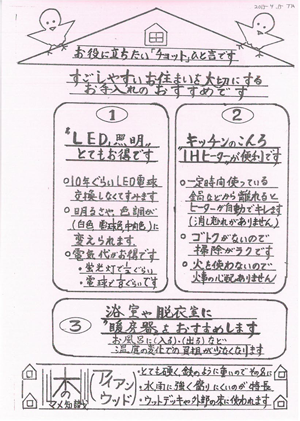 お役に立ちたい「チョット」ひと言です
すごしやすいお住まいを大切にする
お手入れのおすすめです
1
"LED照明"
とてもお得です
○10年ぐらいLED電球
交換しなくてすみます
○明るさや色調が
(白色 電球色 中間色)に
変えられます
○電気代がお得です
・蛍光灯で
・電球と
2
キッチンのこんろ
"IHヒーター"が便利です
○一定時間使っている
鍋などから離れると
ヒーターが自動でキレます
(消し忘れがありません)
○ゴトクがないので
掃除がラクです
○火を使わないので
火事の心配ありません
3
浴室や脱衣室に
"暖房器"をおすすめします
お風呂に(入る)・(出る)など
温度の変化での異損が少なくなります
木の
マメ知識
アイアン
ウッド
・とても硬く鉄のように重いのでその名に
・水雨に強く腐りにくいのが特長
・ウッドデッキや外部の木に使われます